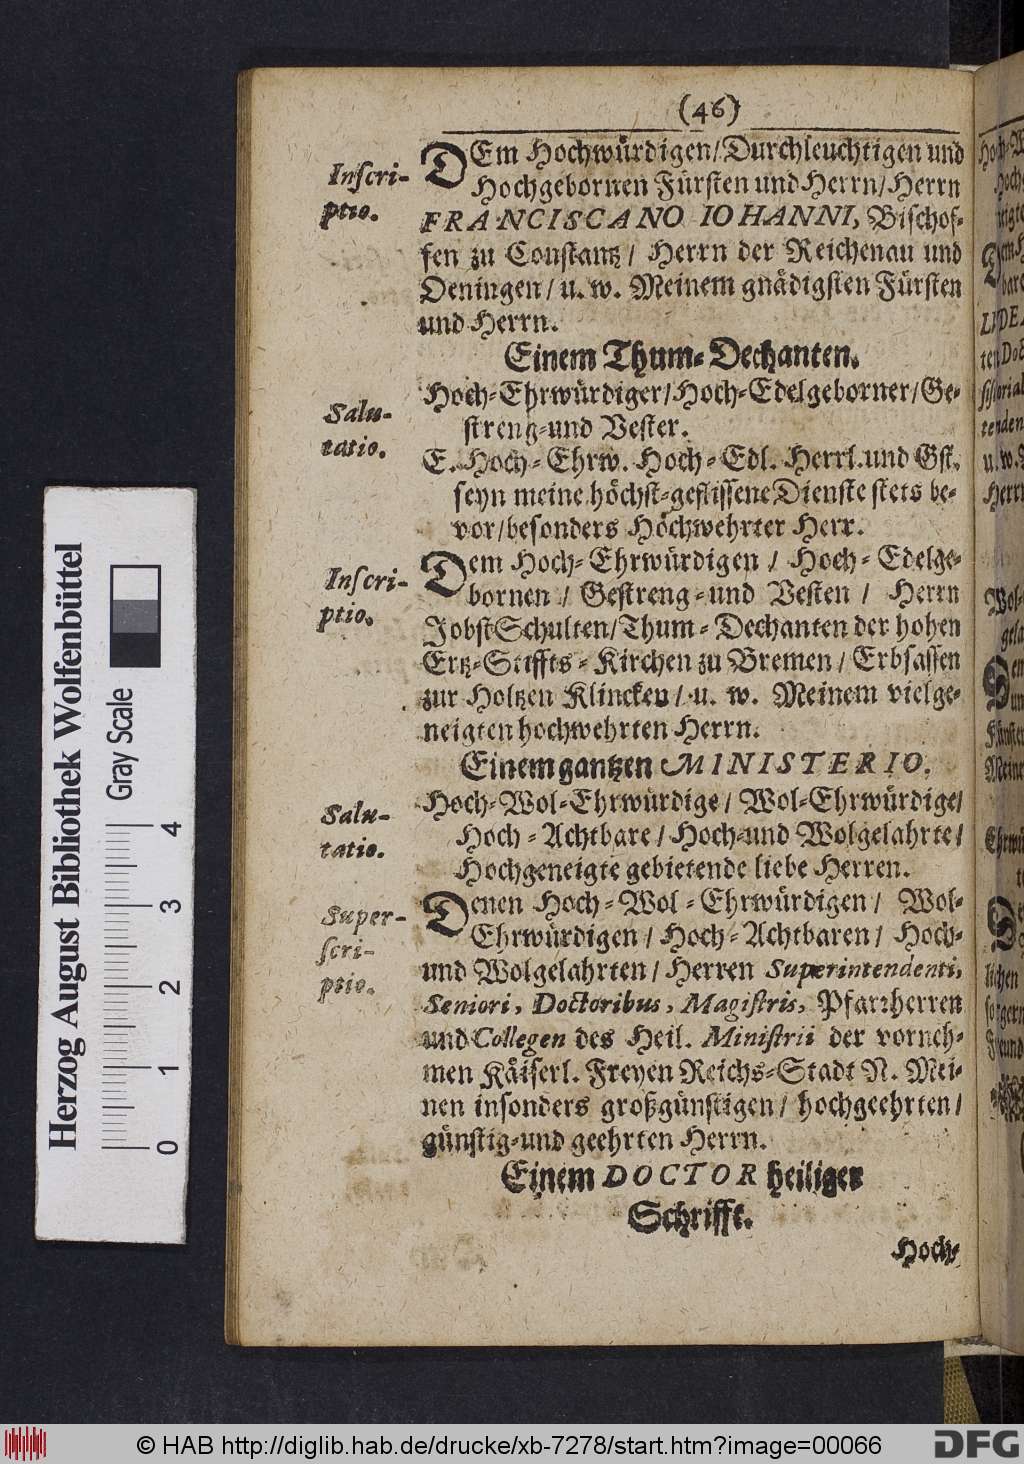 (46)
Inscri-
ptio.
DEm Hochwürdigen/Durchleuchtigen und
Hochgebornen Fürsten und Herrn/Herrn
FRANCISCANO IOHANNI, Bischof-
fen zu Constantz/ Herrn der Reichenau und
Oeningen/ u. w. Meinem gnädigsten Fürsten
und Herrn.
Einem Thum-Dechanten.
Salu-
tatio.
Hoch-Ehrwürdiger/Hoch-Edelgeborner/Ge-
streng-und Vester.
E. Hoch-Ehrw. Hoch-Edl. Herrl. und Gst.
seyn meine höchst-geflissene Dienste stets be-
vor/besonders Höchwehrter Herr.
Inscri-
ptio.
Dem Hoch-Ehrwürdigen / Hoch-Edelge-
bornen / Gestreng-und Vesten / Herrn
Jobst Schulten/Thum-Dechanten der hohen
Ertz-Stiffts-Kirchen zu Bremen/ Erbsassen
zur Holtzen Klincken/ u. w. Meinem vielge-
neigten hochwehrten Herrn.
Einem gantzen MINISTERIO.
Salu-
tatio.
Hoch-Wol-Ehrwürdige/ Wol-Ehrwürdige/
Hoch-Achtbare/ Hoch-und Wolgelahrte/
Hochgeneigte gebietende liebe Herren.
Super-
scri-
ptio.
Denen Hoch-Wol-Ehrwürdigen/ Wol-
Ehrwürdigen/ Hoch-Achtbaren/ Hoch-
und Wolgelahrten/ Herren Superintendenti,
Seniori, Doctoribus, Magistris, Pfarrherren
und Collegen des Heil. Ministrii der vorneh-
men Käiserl. Freyen Reichs-Stadt N. Mei-
nen insonders großgünstigen/ hochgeehrten/
günstig-und geehrten Herrn.
Einem DOCTOR heiliger
Schrifft.
Hoch-
Herzog August Bibliothek Wolfenbüttel
Gray Scale
0 1 2 3 4
© HAB http://diglib.hab.de/drucke/xb-7278/start.htm?image=00066
DFG